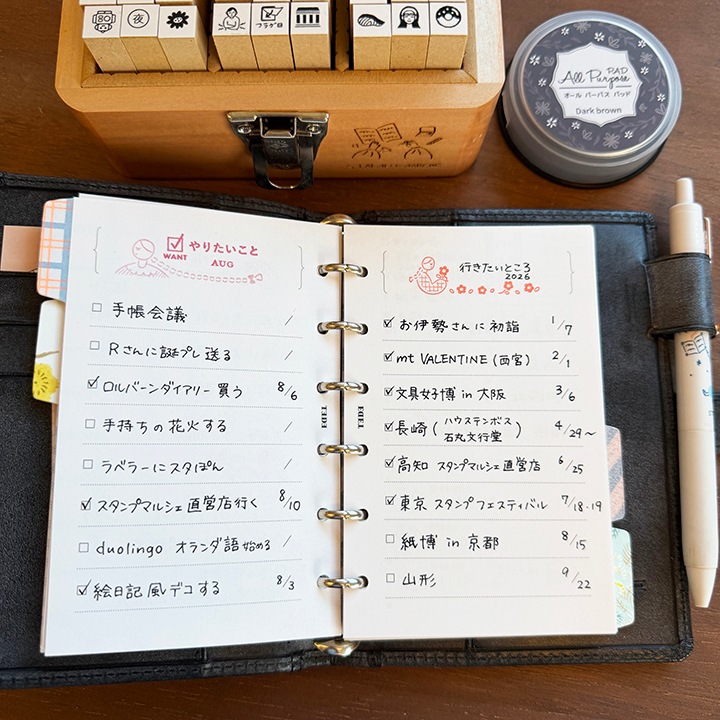 夜
フラゲ日
All Purpose PAD
オール パーパス パッド
Dark brown
やりたいこと
WANT
AUG
手帳会議 /
Rさんに誕プレ送る /
ロルバーンダイアリー買う 8/6
手持ちの花火する /
ラベラーにスタぽん /
スタンプマルシェ直営店行く 8/10
duolingo オランダ語始める /
絵日記風デコする 8/3
行きたいところ
2026
お伊勢さんに初詣 1/7
mt VALENTINE (西宮) 2/1
文具女子博 in 大阪 3/6
長崎 (ハウステンボス 石丸文行堂) 4/29~
高知 スタンプマルシェ直営店 6/25
東京 スタンプフェスティバル 7/18・19
紙博 in 京都 8/15
山形 9/22